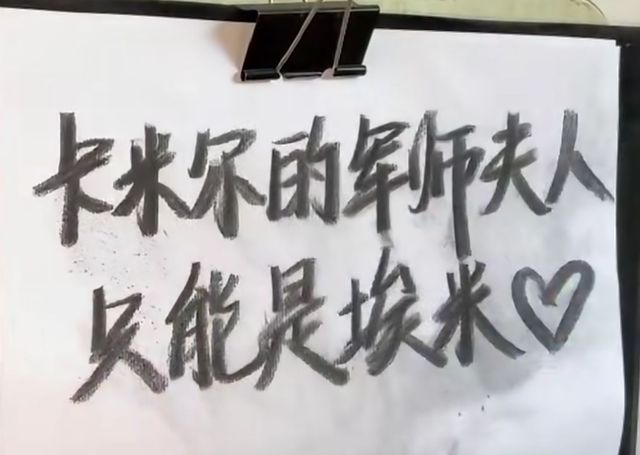 卡米尔的军师夫人
只能是埃米♡